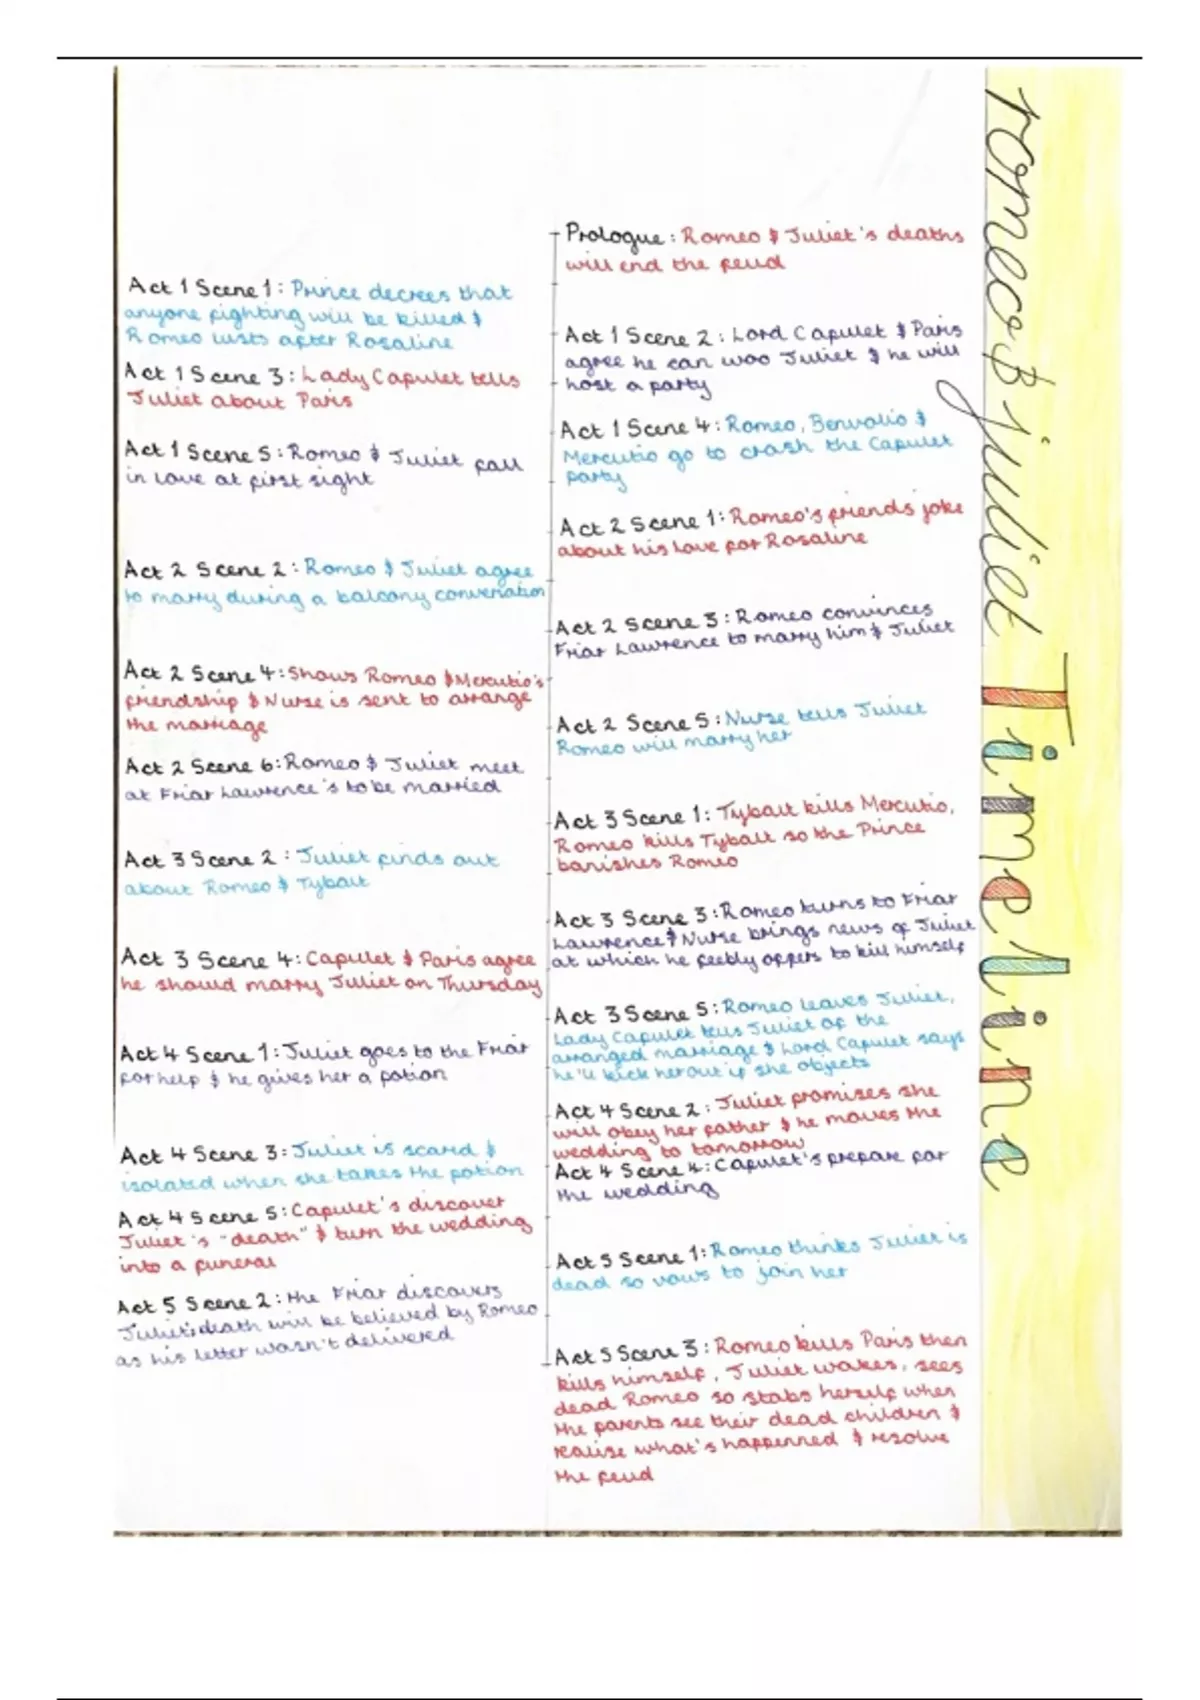 romeo & juliet Timeline
Prologue: Romeo & Juliet's deaths
will end the feud
Act 1 Scene 1: Prince decrees that
anyone fighting will be killed &
Romeo lusts after Rosaline
Act 1 Scene 2: Lord Capulet & Paris
agree he can woo Juliet & he will
host a party
Act 1 Scene 3: Lady Capulet tells
Juliet about Paris
Act 1 Scene 4: Romeo, Benvolio &
Mercutio go to crash the Capulet
party
Act 1 Scene 5: Romeo & Juliet fall
in love at first sight
Act 2 Scene 1: Romeo's friends joke
about his love for Rosaline
Act 2 Scene 2: Romeo & Juliet agree
to marry during a balcony conversation
Act 2 Scene 3: Romeo convinces
Friar Lawrence to marry him & Juliet
Act 2 Scene 4: Shows Romeo & Mercutio's
friendship & Nurse is sent to arrange
the marriage
Act 2 Scene 5: Nurse tells Juliet
Romeo will marry her
Act 2 Scene 6: Romeo & Juliet meet
at Friar Lawrence's to be married
Act 3 Scene 1: Tybalt kills Mercutio,
Romeo kills Tybalt so the Prince
banishes Romeo
Act 3 Scene 2: Juliet finds out
about Romeo & Tybalt
Act 3 Scene 3: Romeo turns to Friar
Lawrence & Nurse brings news of Juliet
at which he feebly offers to kill himself
Act 3 Scene 4: Capulet & Paris agree
he should marry Juliet on Thursday
Act 3 Scene 5: Romeo leaves Juliet,
Lady Capulet tells Juliet of the
arranged marriage & Lord Capulet says
he'll kick her out if she objects
Act 4 Scene 1: Juliet goes to the Friar
for help & he gives her a potion
Act 4 Scene 2: Juliet promises she
will obey her father & he moves the
wedding to tomorrow
Act 4 Scene 3: Juliet is scared &
isolated when she takes the potion
Act 4 Scene 4: Capulet's prepare for
the wedding
Act 4 Scene 5: Capulet's discover
Juliet's "death" & turn the wedding
into a funeral
Act 5 Scene 1: Romeo thinks Juliet is
dead so vows to join her
Act 5 Scene 2: the Friar discovers
Juliet's death will be believed by Romeo
as his letter wasn't delivered
Act 5 Scene 3: Romeo kills Paris then
kills himself, Juliet wakes, sees
dead Romeo so stabs herself when
the parents see their dead children &
realise what's happenned & resolve
the feud